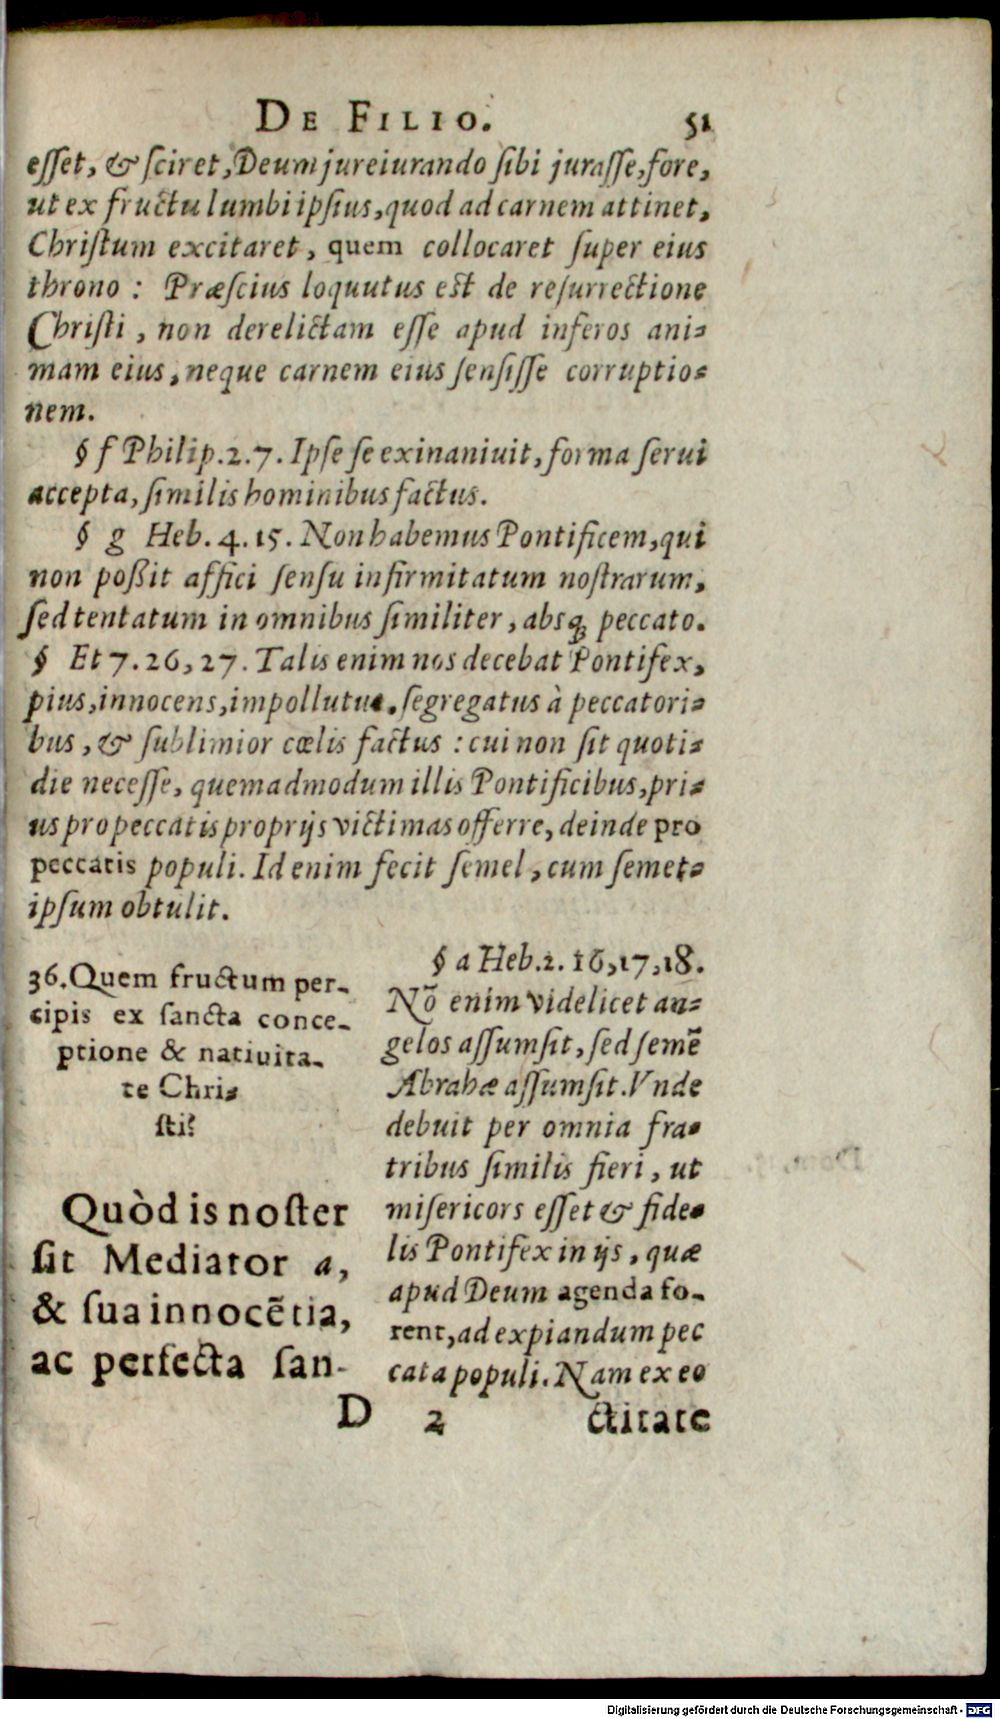 DE FILIO. 51
esset, & sciret, Deum jureiurando sibi jurasse, fore,
ut ex fructu lumbi ipsius, quod ad carnem attinet,
Christum excitaret, quem collocaret super eius
throno : Præscius loquutus est de resurrectione
Christi, non derelictam esse apud inferos ani-
mam eius, neque carnem eius sensisse corruptio-
nem.
§ f Philip. 2. 7. Ipse se exinaniuit, forma serui
accepta, similis hominibus factus.
§ g Heb. 4. 15. Non habemus Pontificem, qui
non poßit affici sensu infirmitatum nostrarum,
sed tentatum in omnibus similiter, absq; peccato.
§ Et 7. 26, 27. Talis enim nos decebat Pontifex,
pius, innocens, impollutus, segregatus à peccatori-
bus, & sublimior cœlis factus : cui non sit quoti-
die necesse, quemadmodum illis Pontificibus, pri-
us pro peccatis proprijs victimas offerre, deinde pro
peccatis populi. Id enim fecit semel, cum semet-
ipsum obtulit.
36. Quem fructum per-
cipis ex sancta conce-
ptione & natiuita-
te Chri-
sti?
Quòd is noster
sit Mediator a,
& sua innocẽtia,
ac perfecta san-
§ a Heb. 2. 16, 17, 18.
Nõ enim videlicet an-
gelos assumsit, sed semẽ
Abrahæ assumsit. Vnde
debuit per omnia fra-
tribus similis fieri, ut
misericors esset & fide-
lis Pontifex in ijs, quæ
apud Deum agenda fo-
rent, ad expiandum pec
cata populi. Nam ex eo
D 2 ctitate
Digitalisierung gefördert durch die Deutsche Forschungsgemeinschaft - DFG